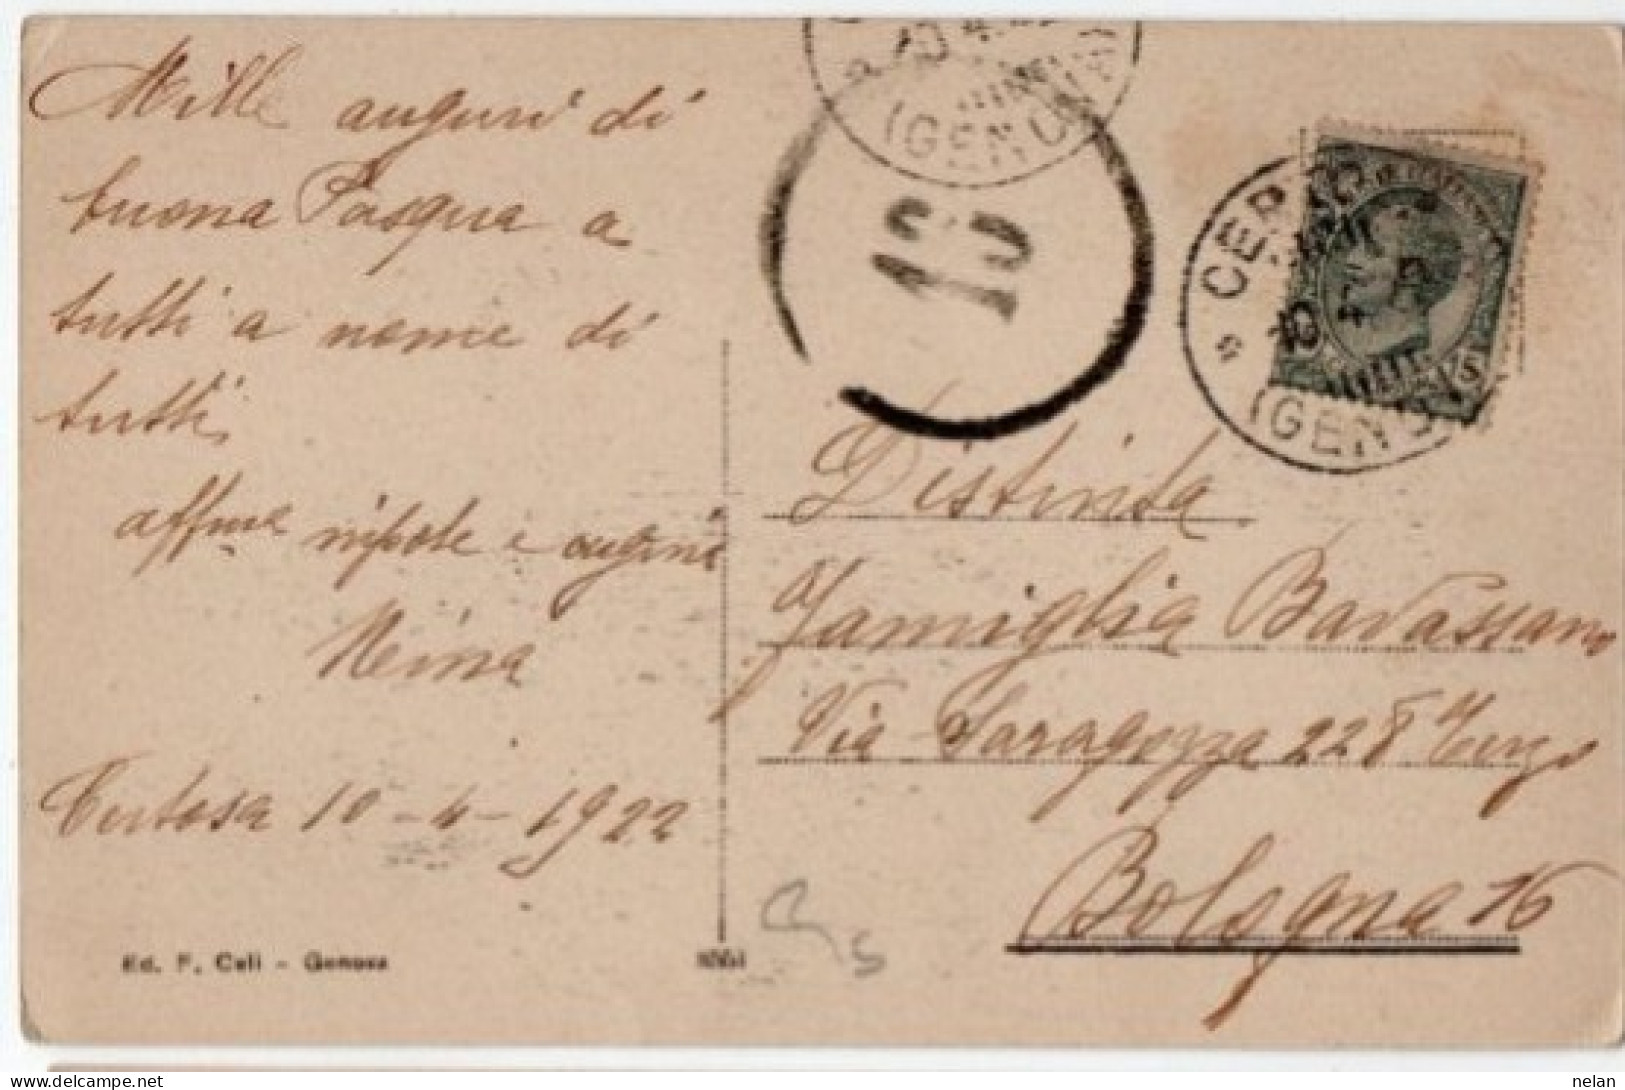 Mille auguri di
buona Pasqua a
tutti a nome di
tutti,
aff.ma nipote e cugina
Neina
10-4-1922
Ed. F. Celi - Genova
(GENOVA)
13
(GENOVA)
Distinta
Famiglia Bavassano
Via Saragozza 228 Terzo
Bologna 16
nelan